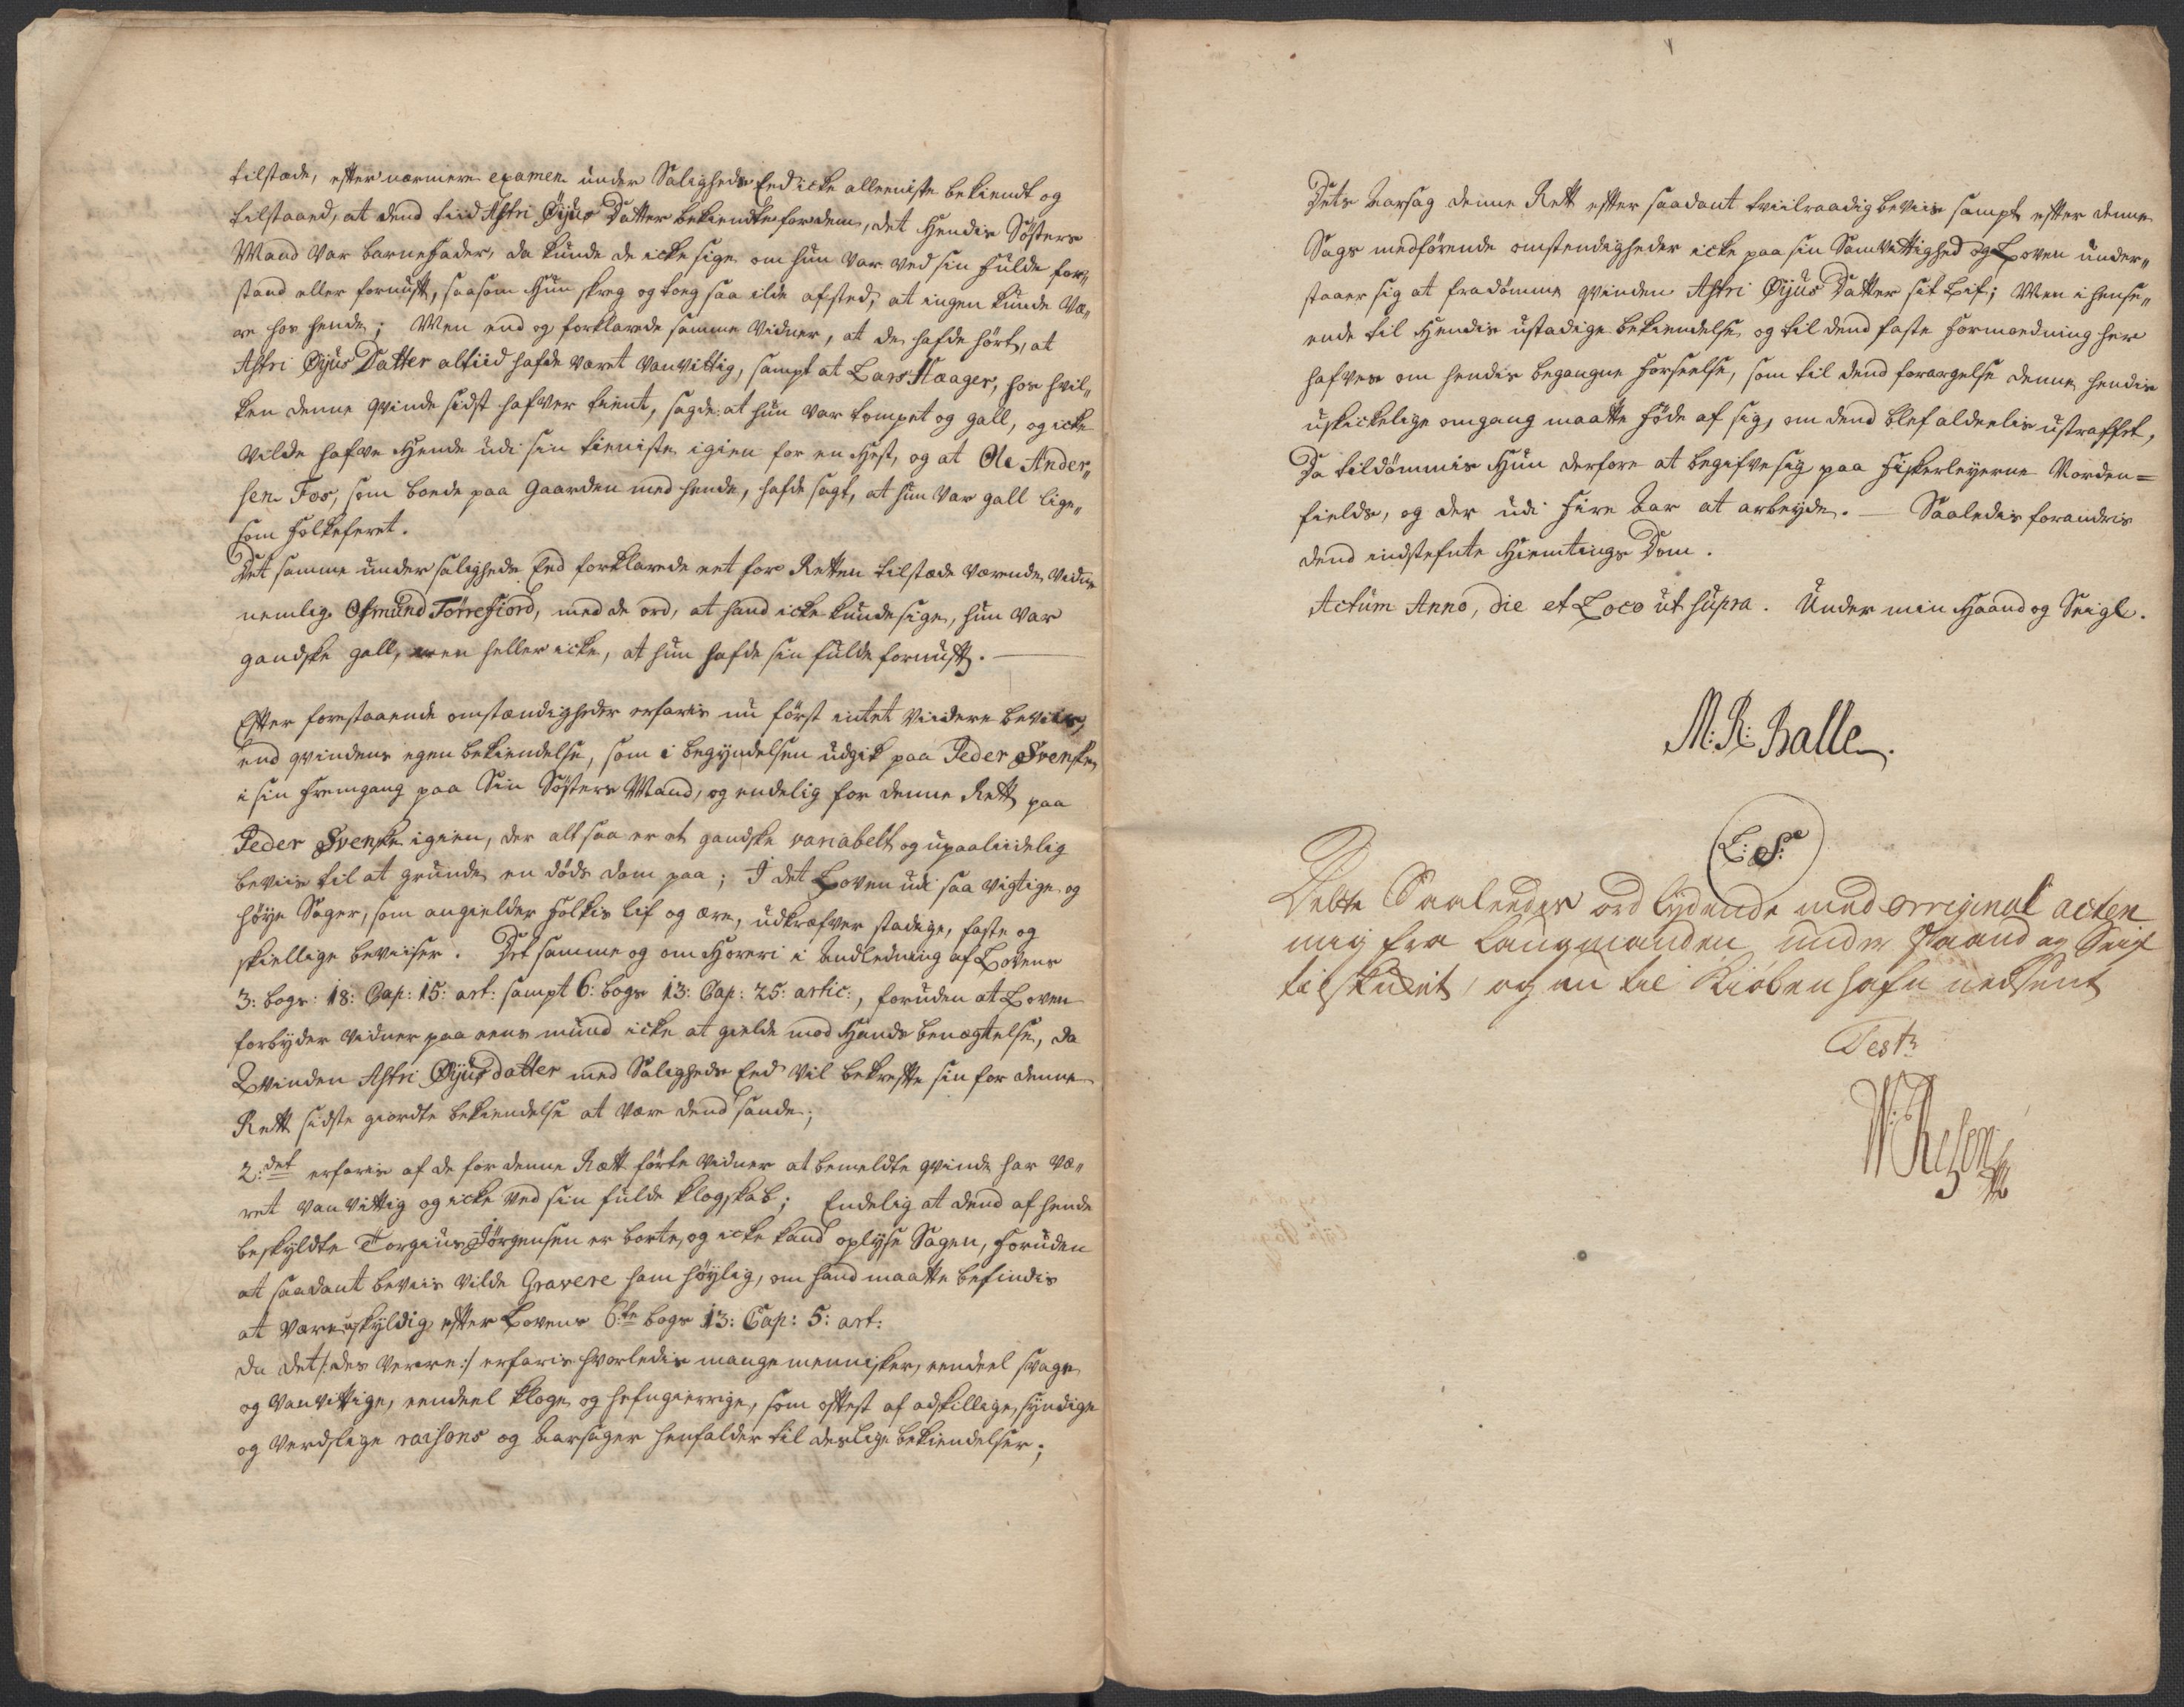 tilstæde, efter nærmere examen under Saligheds Eed icke alleeniste bekiendt og
tilstaaed, at dend tiid Astri Øyus Datter bekiendte for dem, det Hendis Søsters
Mand var barnefader, da kunde de icke sige om hun var ved sin fulde for„
stand eller fornuft, saasom Hun skreg og loeg saa ilde afsted, at ingen kunde væ„
re hos hende; Men end og forklarede samme Vidner, at de hafde hørt, at
Astri Øyus Datter altiid hafde været vanvittig, sampt at Lars Haager, hos hvil„
ken denne qvinde sidst hafver tient, sagde: at hun var tompet og gall, og icke
vilde hafve Hende udi sin tieniste igien for en Hest, og at Ole Ander„
sen Foss, som boede paa Gaarden med hende, hafde sagt, at hun var gall lige„
som folkeferet.
Det samme under saligheds Eed forklarede eet for Retten tilstæde værende Vidne
nemlig Osmund Tørrefiord, med de ord, at hand icke kunde sige, hun var
gandske gall, men heller icke, at hun hafde sin fulde fornuft.
Efter forestaaende omstændigheder erfaris nu først intet viidere beviis,
end qvindens egen bekiendelse, som i begyndelsen udgik paa Peder Svenske,
i sin fremgang paa Sin Søsters Mand, og endelig for denne Rett paa
Peder Svenske igien, der alt saa er et gandske variabelt og upaaliidelig
beviis til at grunde en døds dom paa; I det Loven udi saa vigtige og
høye Sager, som angielder folkis lif og ære, udkræfver stadige, faste og
skiellige beviiser. Det samme og om Horeri i Anledning af Lovens
3: bogs: 18: Cap: 15: art: sampt 6: bogs 13: Cap: 25: artic:, foruden at Loven
forbyder vidner paa eens mund icke at gielde mod Hands benægtelse, da
Qvinden Astri Øyus datter med Saligheds Eed vil bekrefte sin for denne
Rett sidste giordte bekiendelse at være dend sande;
2:det erfaris af de for denne Rætt førte vidner at bemeldte qvinde har væ„
ret vanvittig og icke ved sin fulde klogskab; Endelig at dend af hende
beskyldte Torgius Jørgensen er borte, og icke kand oplyse Sagen, foruden
at saadant beviis vilde Gravere ham høylig, om hand maatte befindis
at være uskyldig efter Lovens 6:te bogs 13: Cap: 5: art:
da det /: des verre :/ erfaris hvorledis mange mennisker, eendeel svage
og vanvittige, eendeel kloge og hefngierrige, som oftest af adskillige, syndige
og verdslige raisons og aarsager henfalder til deslige bekiendelser;
Dets aarsag denne Rett efter saadant tviilraadig beviis sampt efter denne
Sags medførende omstendigheder icke paa sin Samvittighed og Loven under„
staaer sig at fradømme qvinden Astri Øyus Datter sit Lif; Men i hense„
ende til Hendis ustadige bekiendelse og til dend faste formoedning her
hafves om hendis begangne forseelse, som til dend forargelse denne hendis
uskickelige omgang maatte føde af sig, om dend blef aldeelis ustraffet,
Da tildømmis Hun derfore at begifve sig paa fiskerleyerne Norden=
fields, og der udi fire Aar at arbeyde. — Saaledis forandris
dend indstefnte Hiemtings Dom.
Actum Anno, die et Loco ut supra. Under min Haand og Seigl.
M: R: Balle.
L: S:
Dette Saaledes ord lydende med orriginal acten
mig fra Laugmanden under Haand og Seigl
tilskicket, og nu til Kiøbenhafn nedsent
Test: